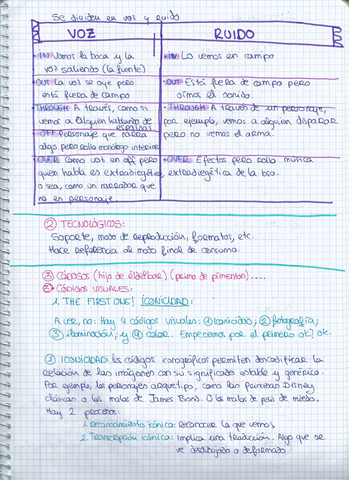 Se dividen en voz y ruido
VOZ
RUIDO
·IN: Vemos la boca y la
voz saliendo (la fuente)
·IN: Lo vemos en campo
·OUT: La voz se oye pero
está fuera de campo
·OUT: Está fuera de campo pero
oímos el sonido.
·THROUGH: A través, como si
vemos a alguien hablando de
espaldas
·THROUGH: A través de un personaje,
por ejemplo, vemos a alguien disparar
pero no vemos el arma.
·OFF: Personaje que narra
algo pero rollo monólogo interior
·OVER: Como voz en off pero
quien habla es extradiegético,
o sea, como un narrador que
no es personaje.
·OVER: Efectos pero rollo música
extradiegética de la bso.
② TECNOLÓGICOS:
Soporte, modo de reproducción, formatos, etc.
Hace referencia al modo final de consumo.
③ CÓDIGOS (hijo de eldelbar) (primo de pimenton)....
③ CÓDIGOS VISUALES:
1. THE FIRST ONE! ICONICIDAD:
A ver, no: Hay 4 códigos visuales: ① iconicidad; ② fotografía;
③ iluminación; y ④ color. Empecemos por el primero ok? ok.
① ICONICIDAD: los códigos iconográficos permiten descodificar la
relación de las imágenes con su significado estable y genérico.
Por ejemplo, los personajes arquetipo, como las Princesas Disney
clásicas o los malos de James Bond. O los malos de pelis de miedo.
Hay 2 procesos:
1. Reconocimiento icónico: reconocer lo que vemos
2. Transcripción icónica: implica una traducción. Algo que se
ve distribuido o deformado